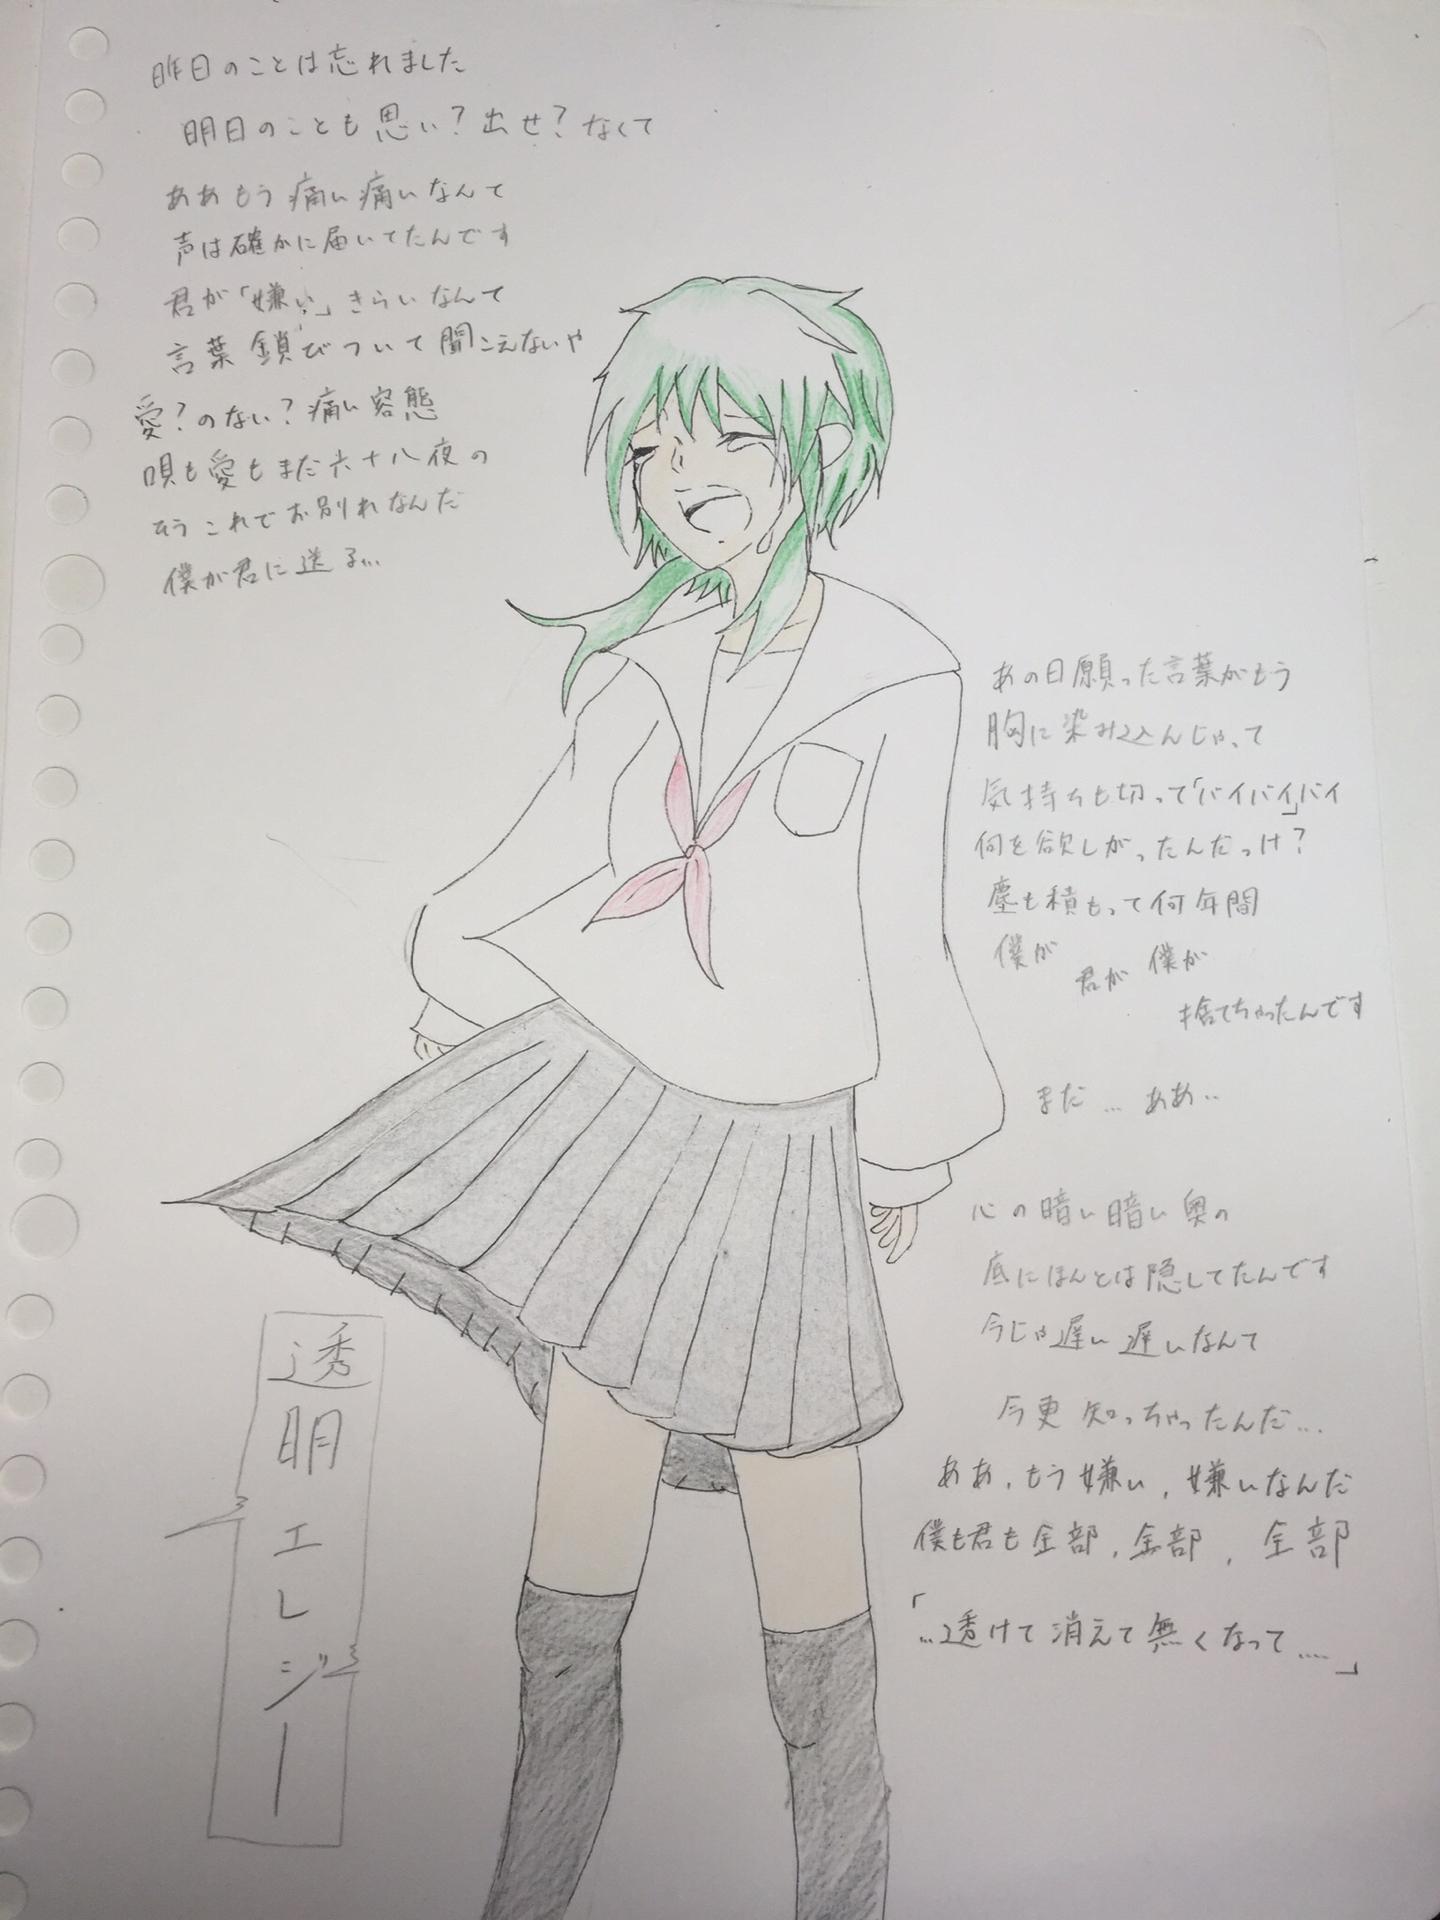 昨日のことは忘れました
明日のことも思い?出せ?なくて
ああもう痛い痛いなんて
声は確かに届いてたんです
君が「嫌い」きらいなんて
言葉鎖びついて聞こえないや
愛?のない?痛い容態
唄も愛もまだ六十八夜の
もうこれでお別れなんだ
僕が君に送る...
あの日願った言葉がもう
胸に染み込んじゃって
気持ちも切って「バイバイ」バイ
何を欲しがったんだっけ?
塵も積もって何年間
僕が 君が 僕が
捨てちゃったんです
まだ... ああ..
心の暗い暗い奥の
底にほんとは隠してたんです
今じゃ遅い遅いなんて
今更知っちゃったんだ...
ああ、もう嫌い、嫌いなんだ
僕も君も全部、全部、全部
「...透けて消えて無くなって.....」
透明エレジー